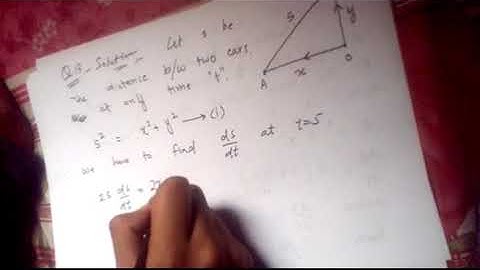 Q13- Solution - Let s be
The distance b/w two cars
at any time "t".
s² = x² + y² → (1)
we have to find ds/dt at t=5
2s ds/dt = 2x
s
y
x
A
O